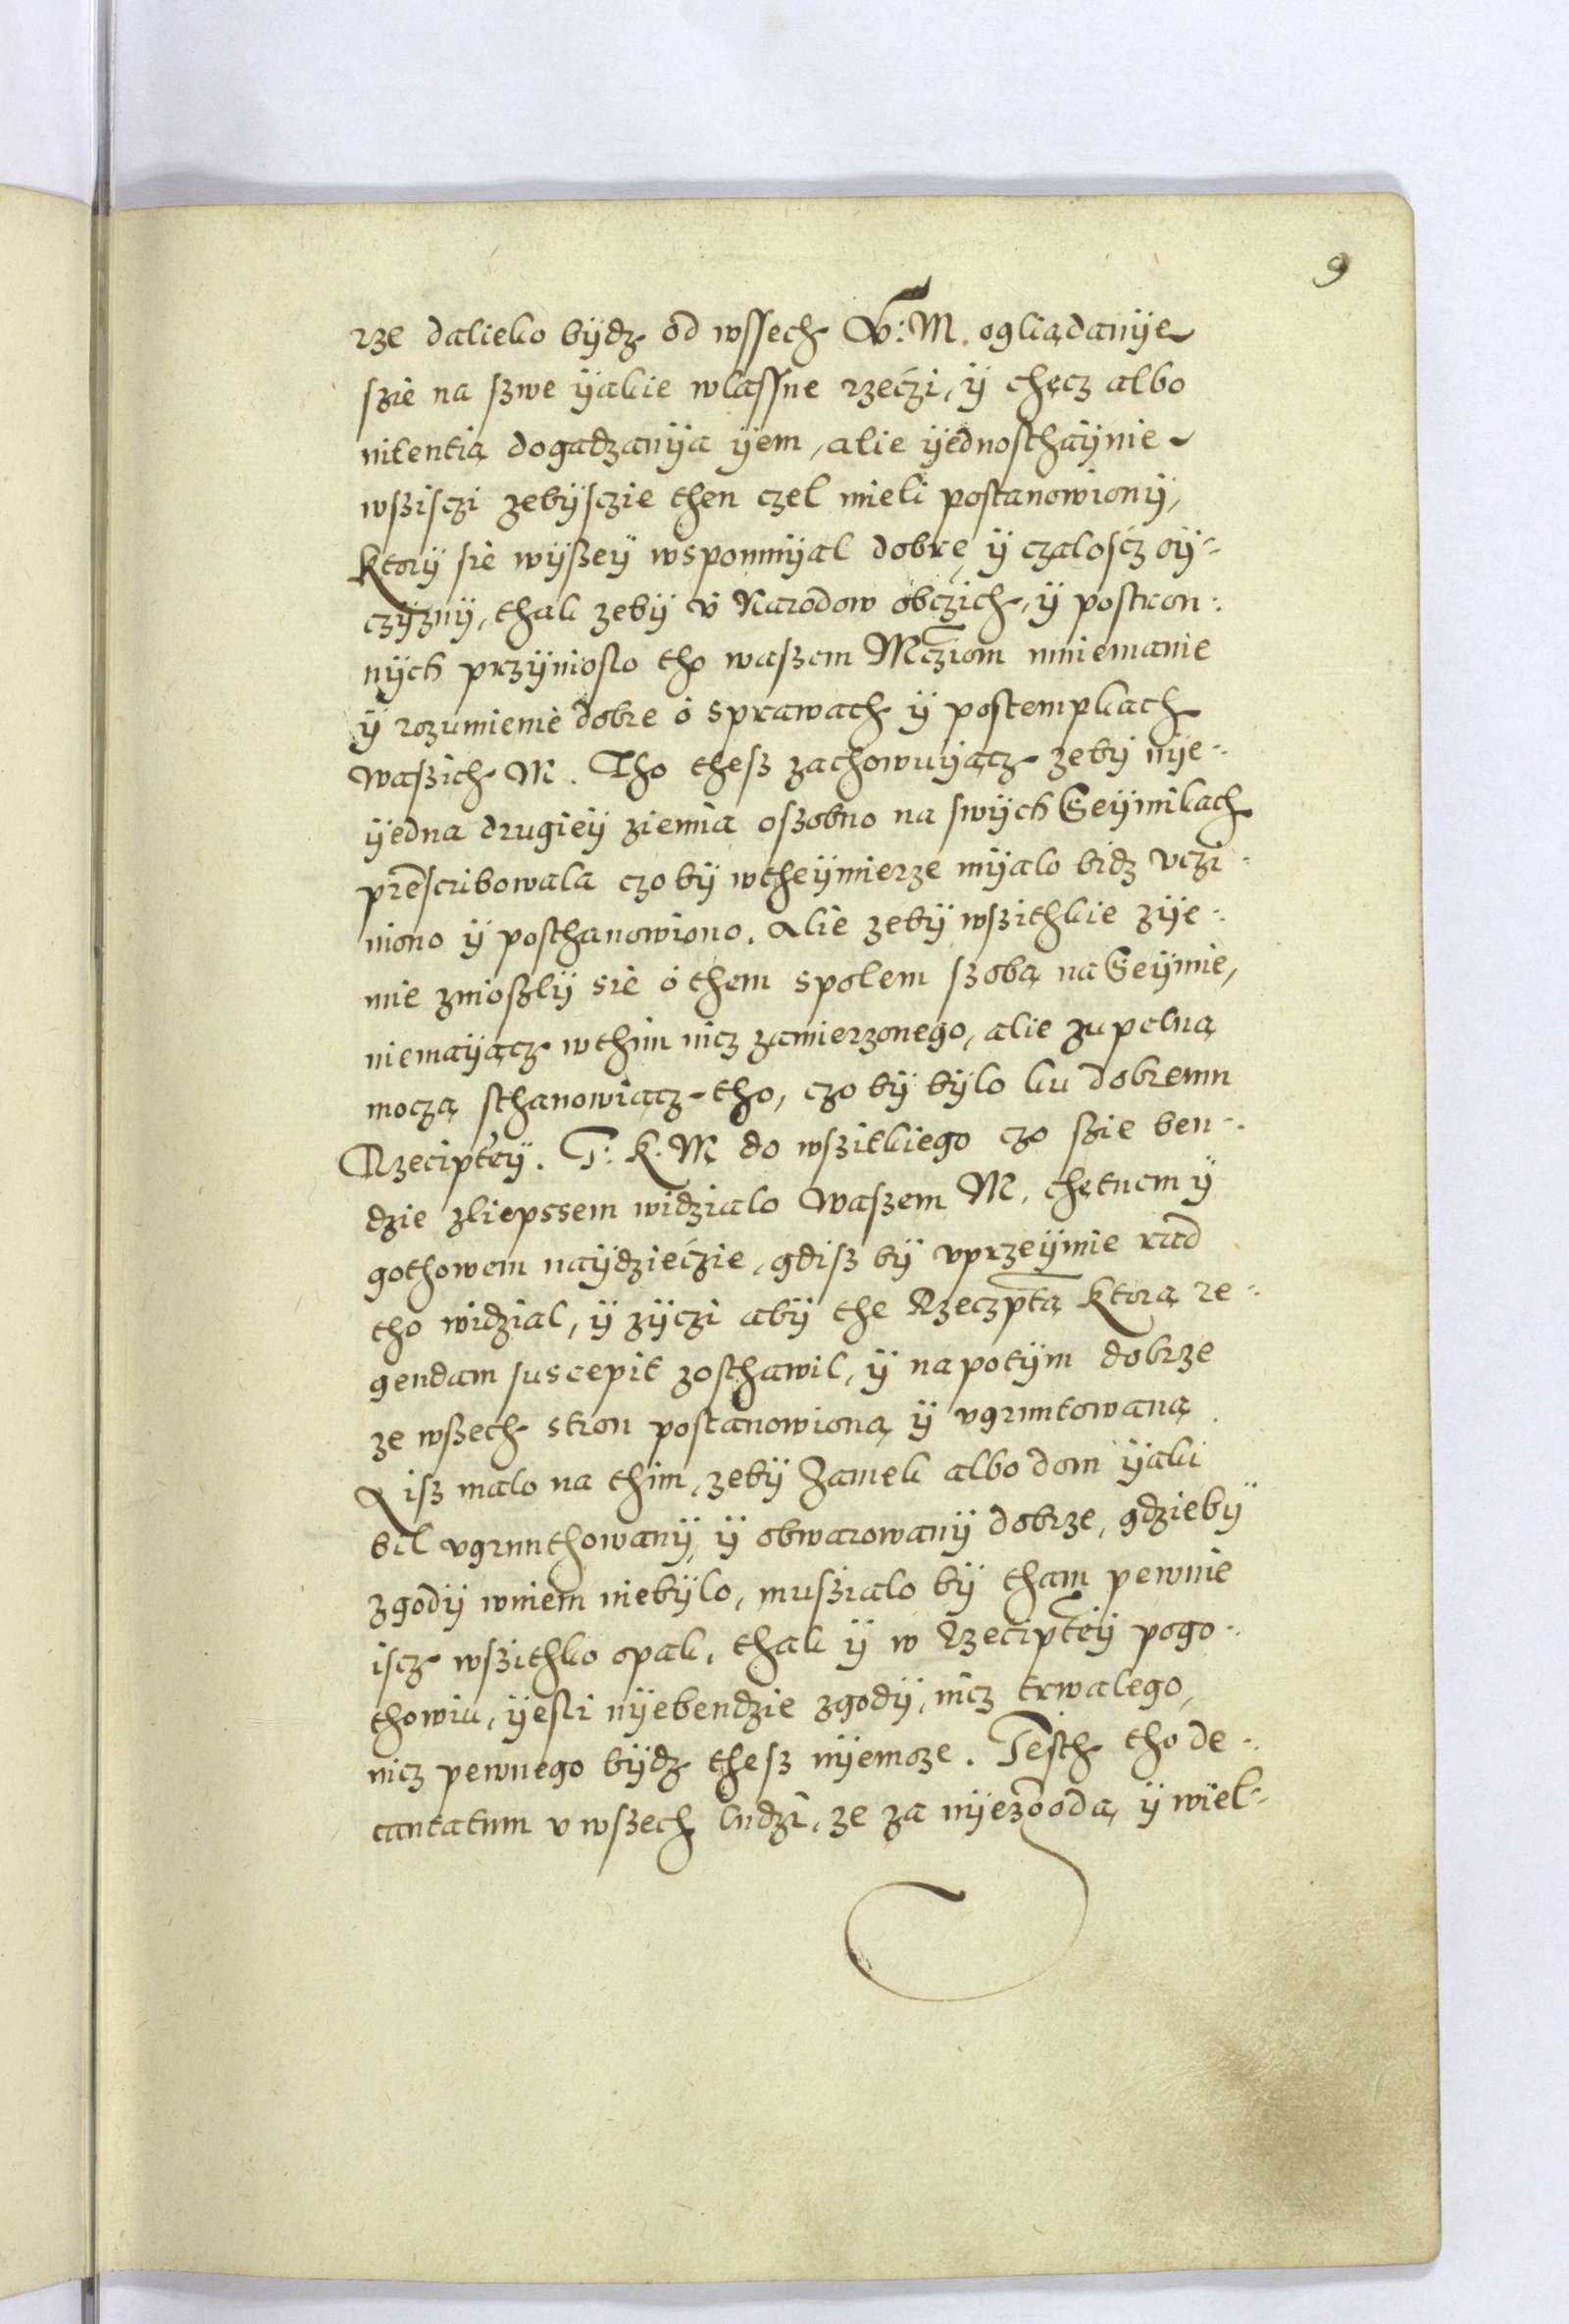 9
rze dalieko bÿdz od wssech W: M. ogliądanÿe
szie na szwe ÿakie wlassne rzeczi, ÿ chęcz albo
nitentią dogadzanÿa ÿem, alie ÿednosthaÿnie
wszisczi zebÿsczie then czel mieli postanowionÿ,
Ktorÿ sie wÿszeÿ wspomnÿal dobre ÿ czaloscz oÿ-
czÿznÿ, thak zebÿ v Narodow obczich, ÿ postron-
nÿch przÿnioslo tho waszem Mcziom mniemanie
ÿ rozumienie dobre o sprawach ÿ postempkach
waszich M. Tho thesz zachowuÿącz zebÿ nÿe-
ÿedna drugieÿ ziemia oszobno na swÿch Seÿmikach
prescribowala czo bÿ wtheÿmierze mÿalo bidz vczi-
niono ÿ posthanowiono. Alie zebÿ wszithkie zÿe-
mie znioszlÿ sie o them spolem szobą na Seÿmie,
niemaÿącz wthim nicz zamierzonego, alie zupelną
moczą sthanowiącz tho, czo bÿ bÿlo ku dobremu
Rzecipteÿ. J: K. M do wszitkiego czo szie ben-
dzie zliepssem widzialo Waszem M. chętnem ÿ
gothowem naÿdzieczie, gdisz bÿ vprzeÿmie rad
tho widzial, ÿ zÿczi abÿ the Rzeczptą Ktorą re-
gendam suscepit zosthawil, ÿ napotÿm dobrze
ze wszech stron postanowioną ÿ vgruntowaną
A isz malo na thim, zebÿ Zamek albo dom ÿaki
bil vgrunthowanÿ, ÿ obwarowanÿ dobrze, gdziebÿ
zgodÿ wniem niebÿlo, muszialo bÿ tham pewnie
iscz wszithko opak, thak ÿ w Rzecipteÿ pogo-
thowiu, ÿesli nÿebendzie zgodÿ, nicz trwalego,
nicz pewnego bÿdz thesz nÿemoze. Jesth tho de-
cantatum v wszech ludzi, ze za nÿezgodą ÿ wiel-